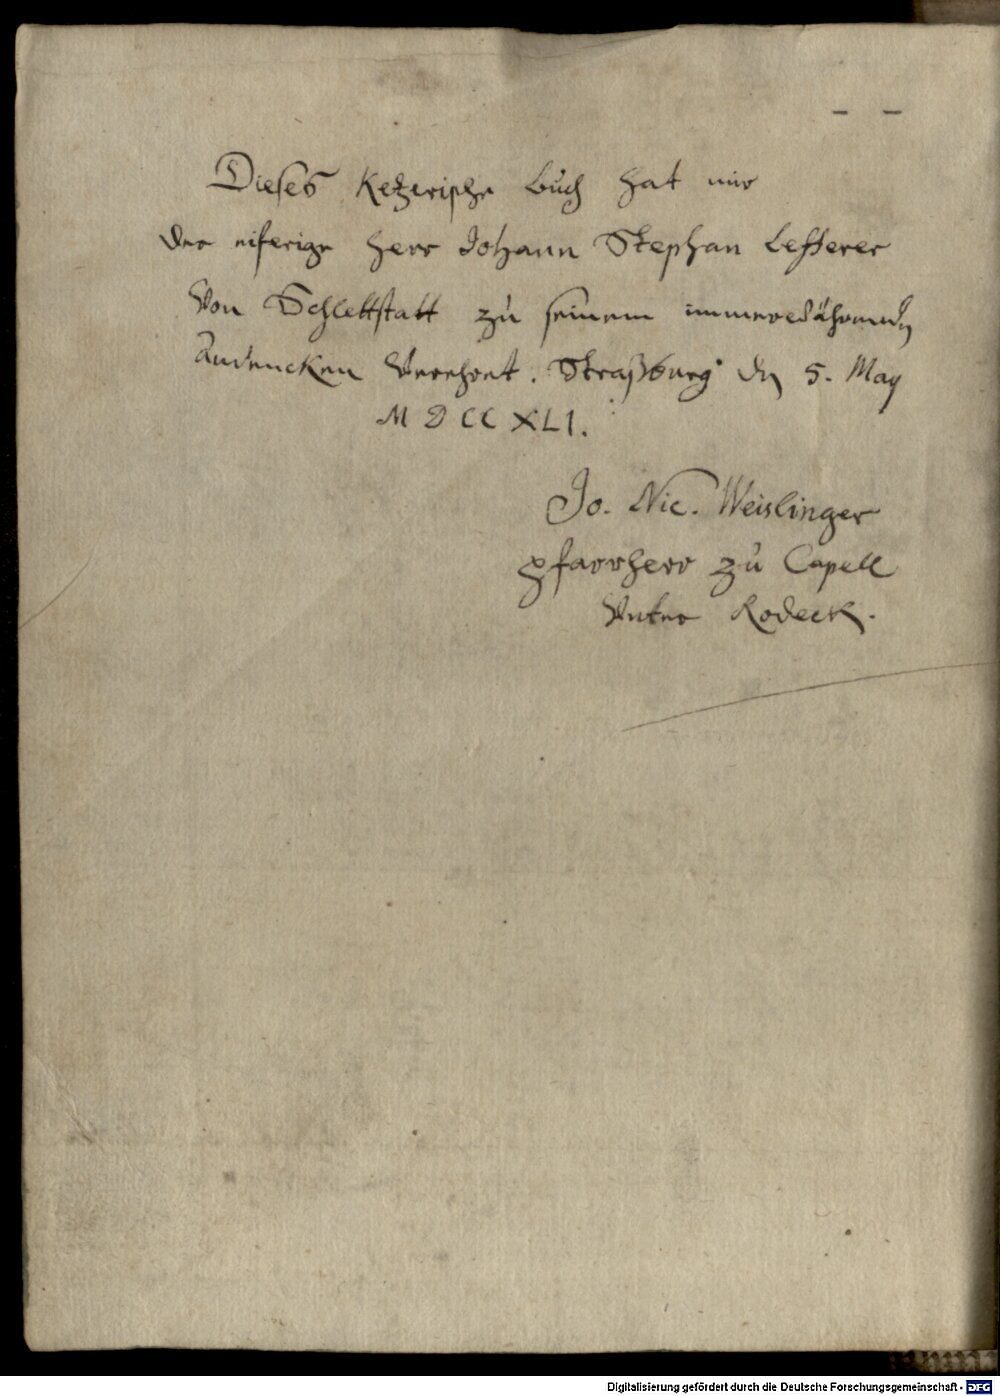 Dieses Ketzerische Buch hat mir
der eiferige Herr Johann Stephan Lesserer
Von Schlettstatt zu seinem immerwährenden
Andencken Verehret. Straßburg den 5. May
MDCCXLI.
Jo. Nic. Weislinger
Pfarrherr zu Capell
Unter Rodeck.
Digitalisierung gefördert durch die Deutsche Forschungsgemeinschaft - DFG